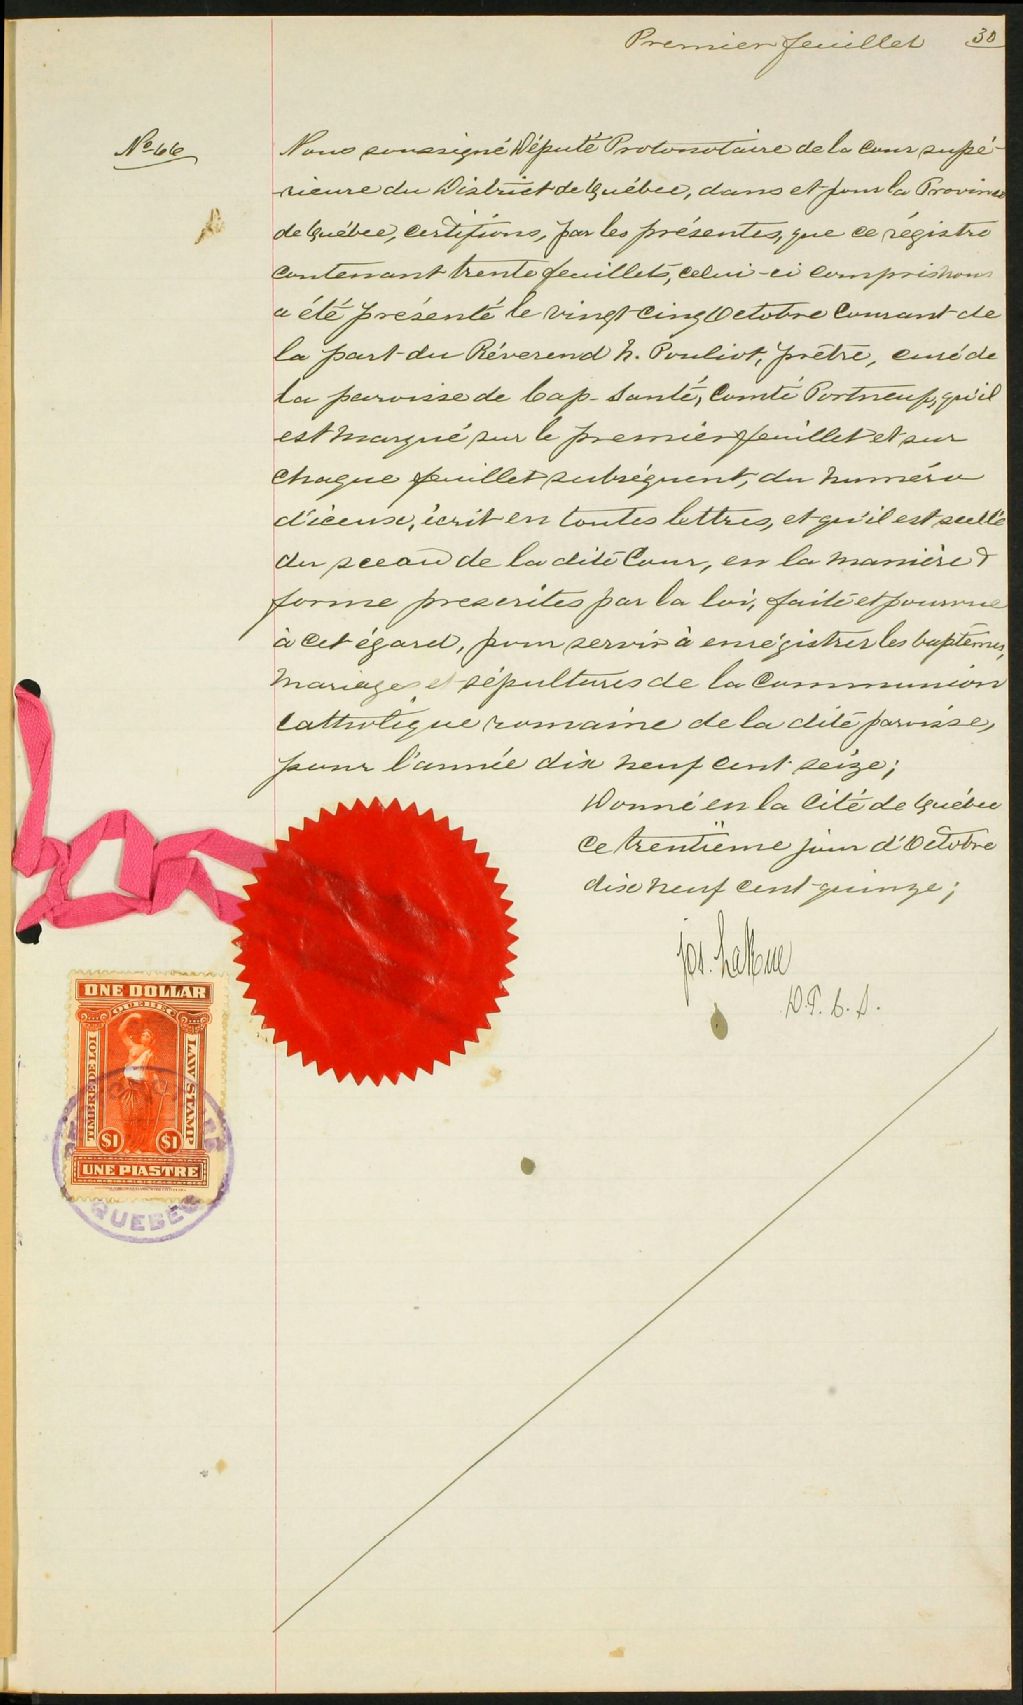 Premier feuillet 30
No 66
Nous soussigné Député Protonotaire de la Cour supé-
rieure du District de Québec, dans et pour la Province
de Québec, certifions, par les présentes, que ce régistre
contenant trente feuillets, celui-ci compris nous
a été présenté le vingt cinq Octobre Courant de
la part du Réverend h. Pouliot, prêtre, curé de
la paroisse de Cap-Santé, Comté Portneuf, qu'il
est marqué sur le premier feuillet et sur
chaque feuillet subséquent, du numéro
d'iceux, écrit en toutes lettres, et qu'il est scellé
du sceau de la dite Cour, en la manière &
forme prescrites par la loi, faite et pourvue
à cet égard, pour servir à enrégistrer les baptêmes,
mariages et sépultures de la Communion
Catholique romaine de la dite paroisse,
pour l'année dix neuf cent seize;
Donné en la Cité de Québec
Ce trentième jour d'Octobre
dix neuf cent quinze;
Jos. LaRue
D.P.C.S.
ONE DOLLAR
QUEBEC
TIMBRE DE LOI
LAW STAMP
$1 $1
UNE PIASTRE
QUEBEC